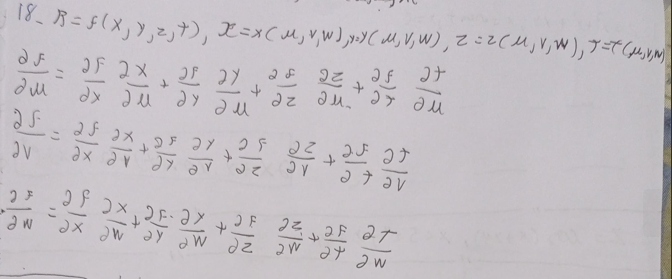 18. R = f(x, y, z, t), x = x(u, v, w), y = y(u, v, w), z = z(u, v, w), t = t(u, v, w)
∂f/∂u = ∂f/∂x ∂x/∂u + ∂f/∂y ∂y/∂u + ∂f/∂z ∂z/∂u + ∂f/∂t ∂t/∂u
∂f/∂v = ∂f/∂x ∂x/∂v + ∂f/∂y ∂y/∂v + ∂f/∂z ∂z/∂v + ∂f/∂t ∂t/∂v
∂f/∂w = ∂f/∂x ∂x/∂w + ∂f/∂y · ∂y/∂w + ∂f/∂z ∂z/∂w + ∂f/∂t ∂t/∂w